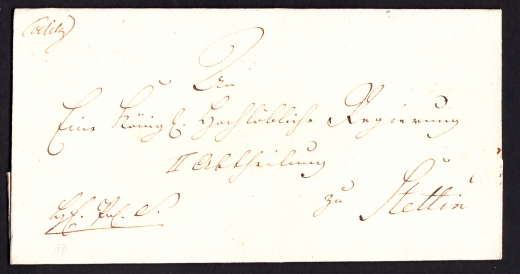 An
Eine Königl. Hochlöbliche Regierung
II Abtheilung
zu Stettin